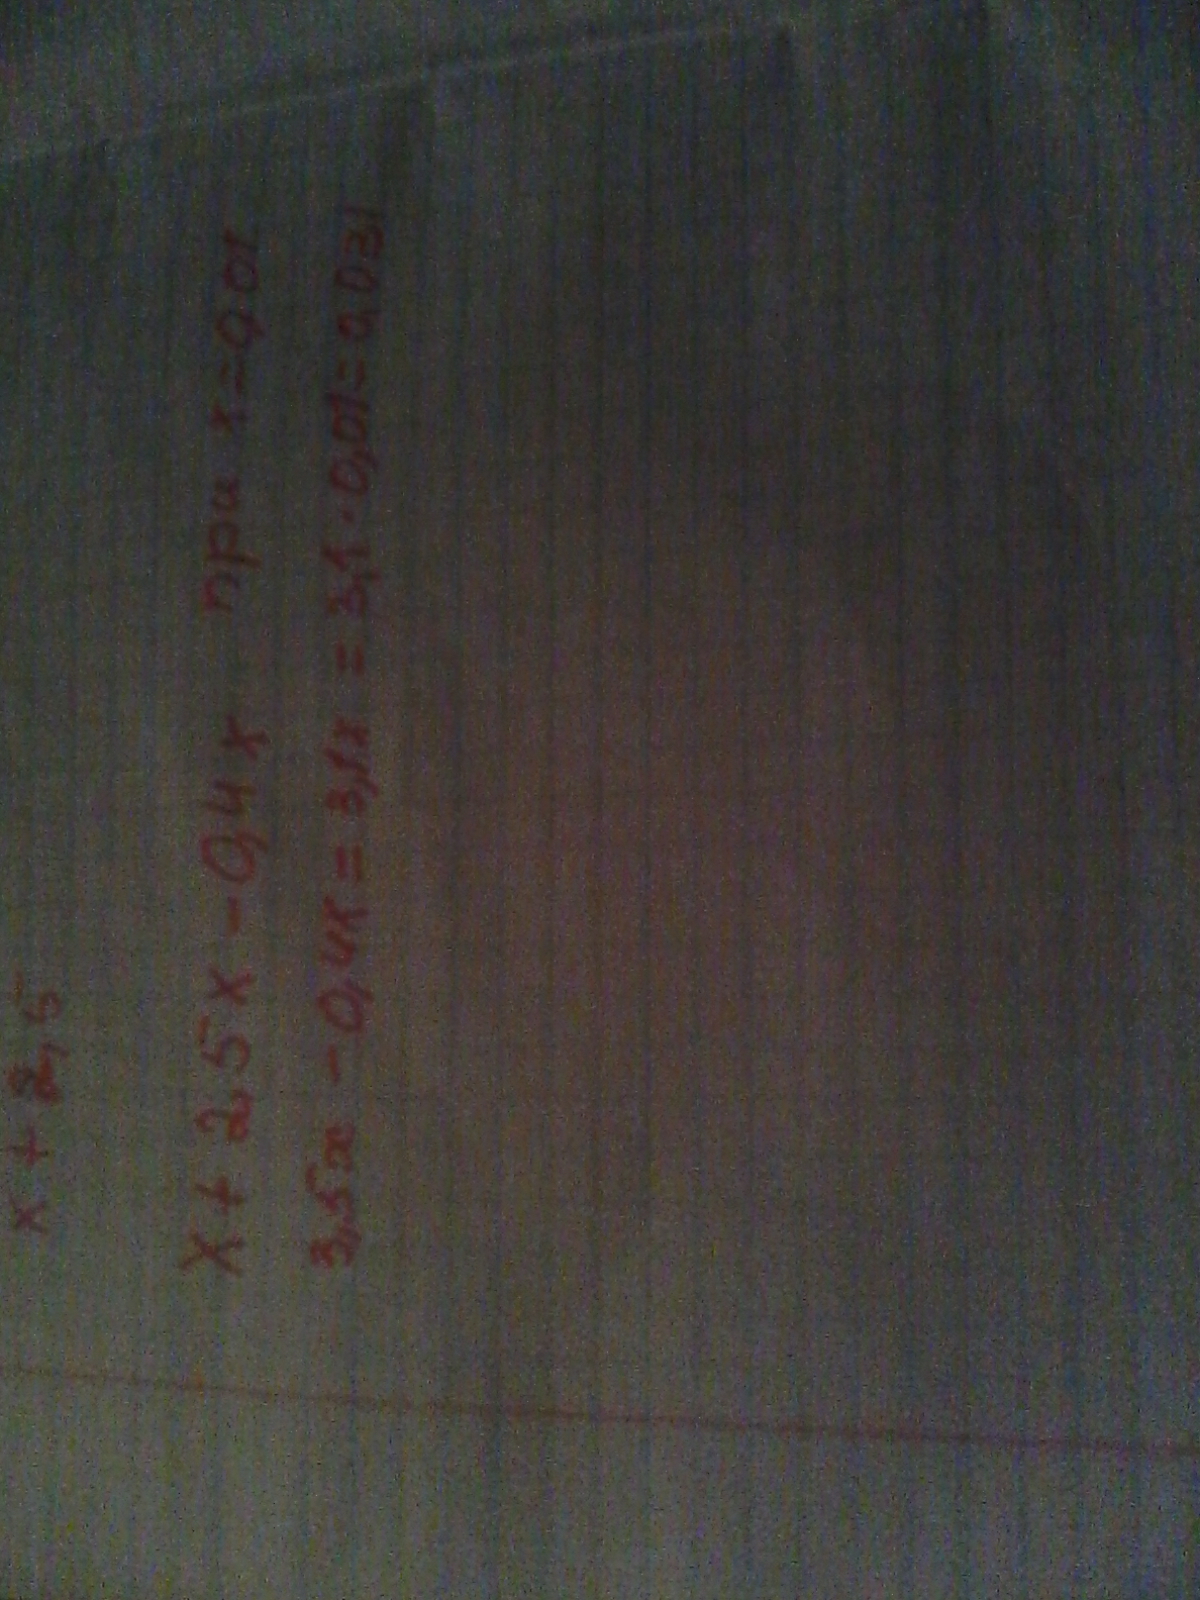 x + 2,5
x + 2,5x - 0,4x при x = 0,01
3,5x - 0,4x = 3,1x = 3,1 · 0,01 = 0,031